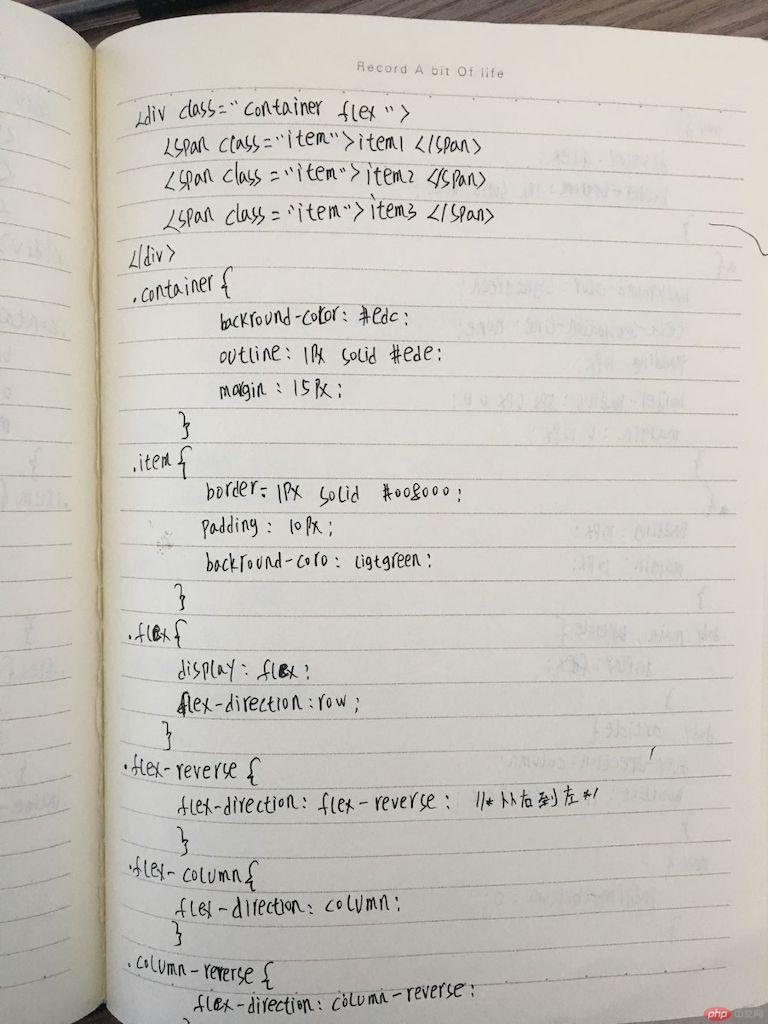 Record A bit Of life
<div class="container flex">
<span class="item">item1 </span>
<span class="item">item2 </span>
<span class="item">item3 </span>
</div>
.container {
backround-color: #edc;
outline: 1px solid #ede;
margin: 15px;
}
.item {
border: 1px solid #008000;
padding: 10px;
backround-coro: ligtgreen;
}
.flex {
display: flex;
flex-direction: row;
}
.flex-reverse {
flex-direction: flex-reverse; //* 从右到左 */
}
.flex-column {
flex-direction: column;
}
.column-reverse {
flex-direction: column-reverse;
}
php 中文网